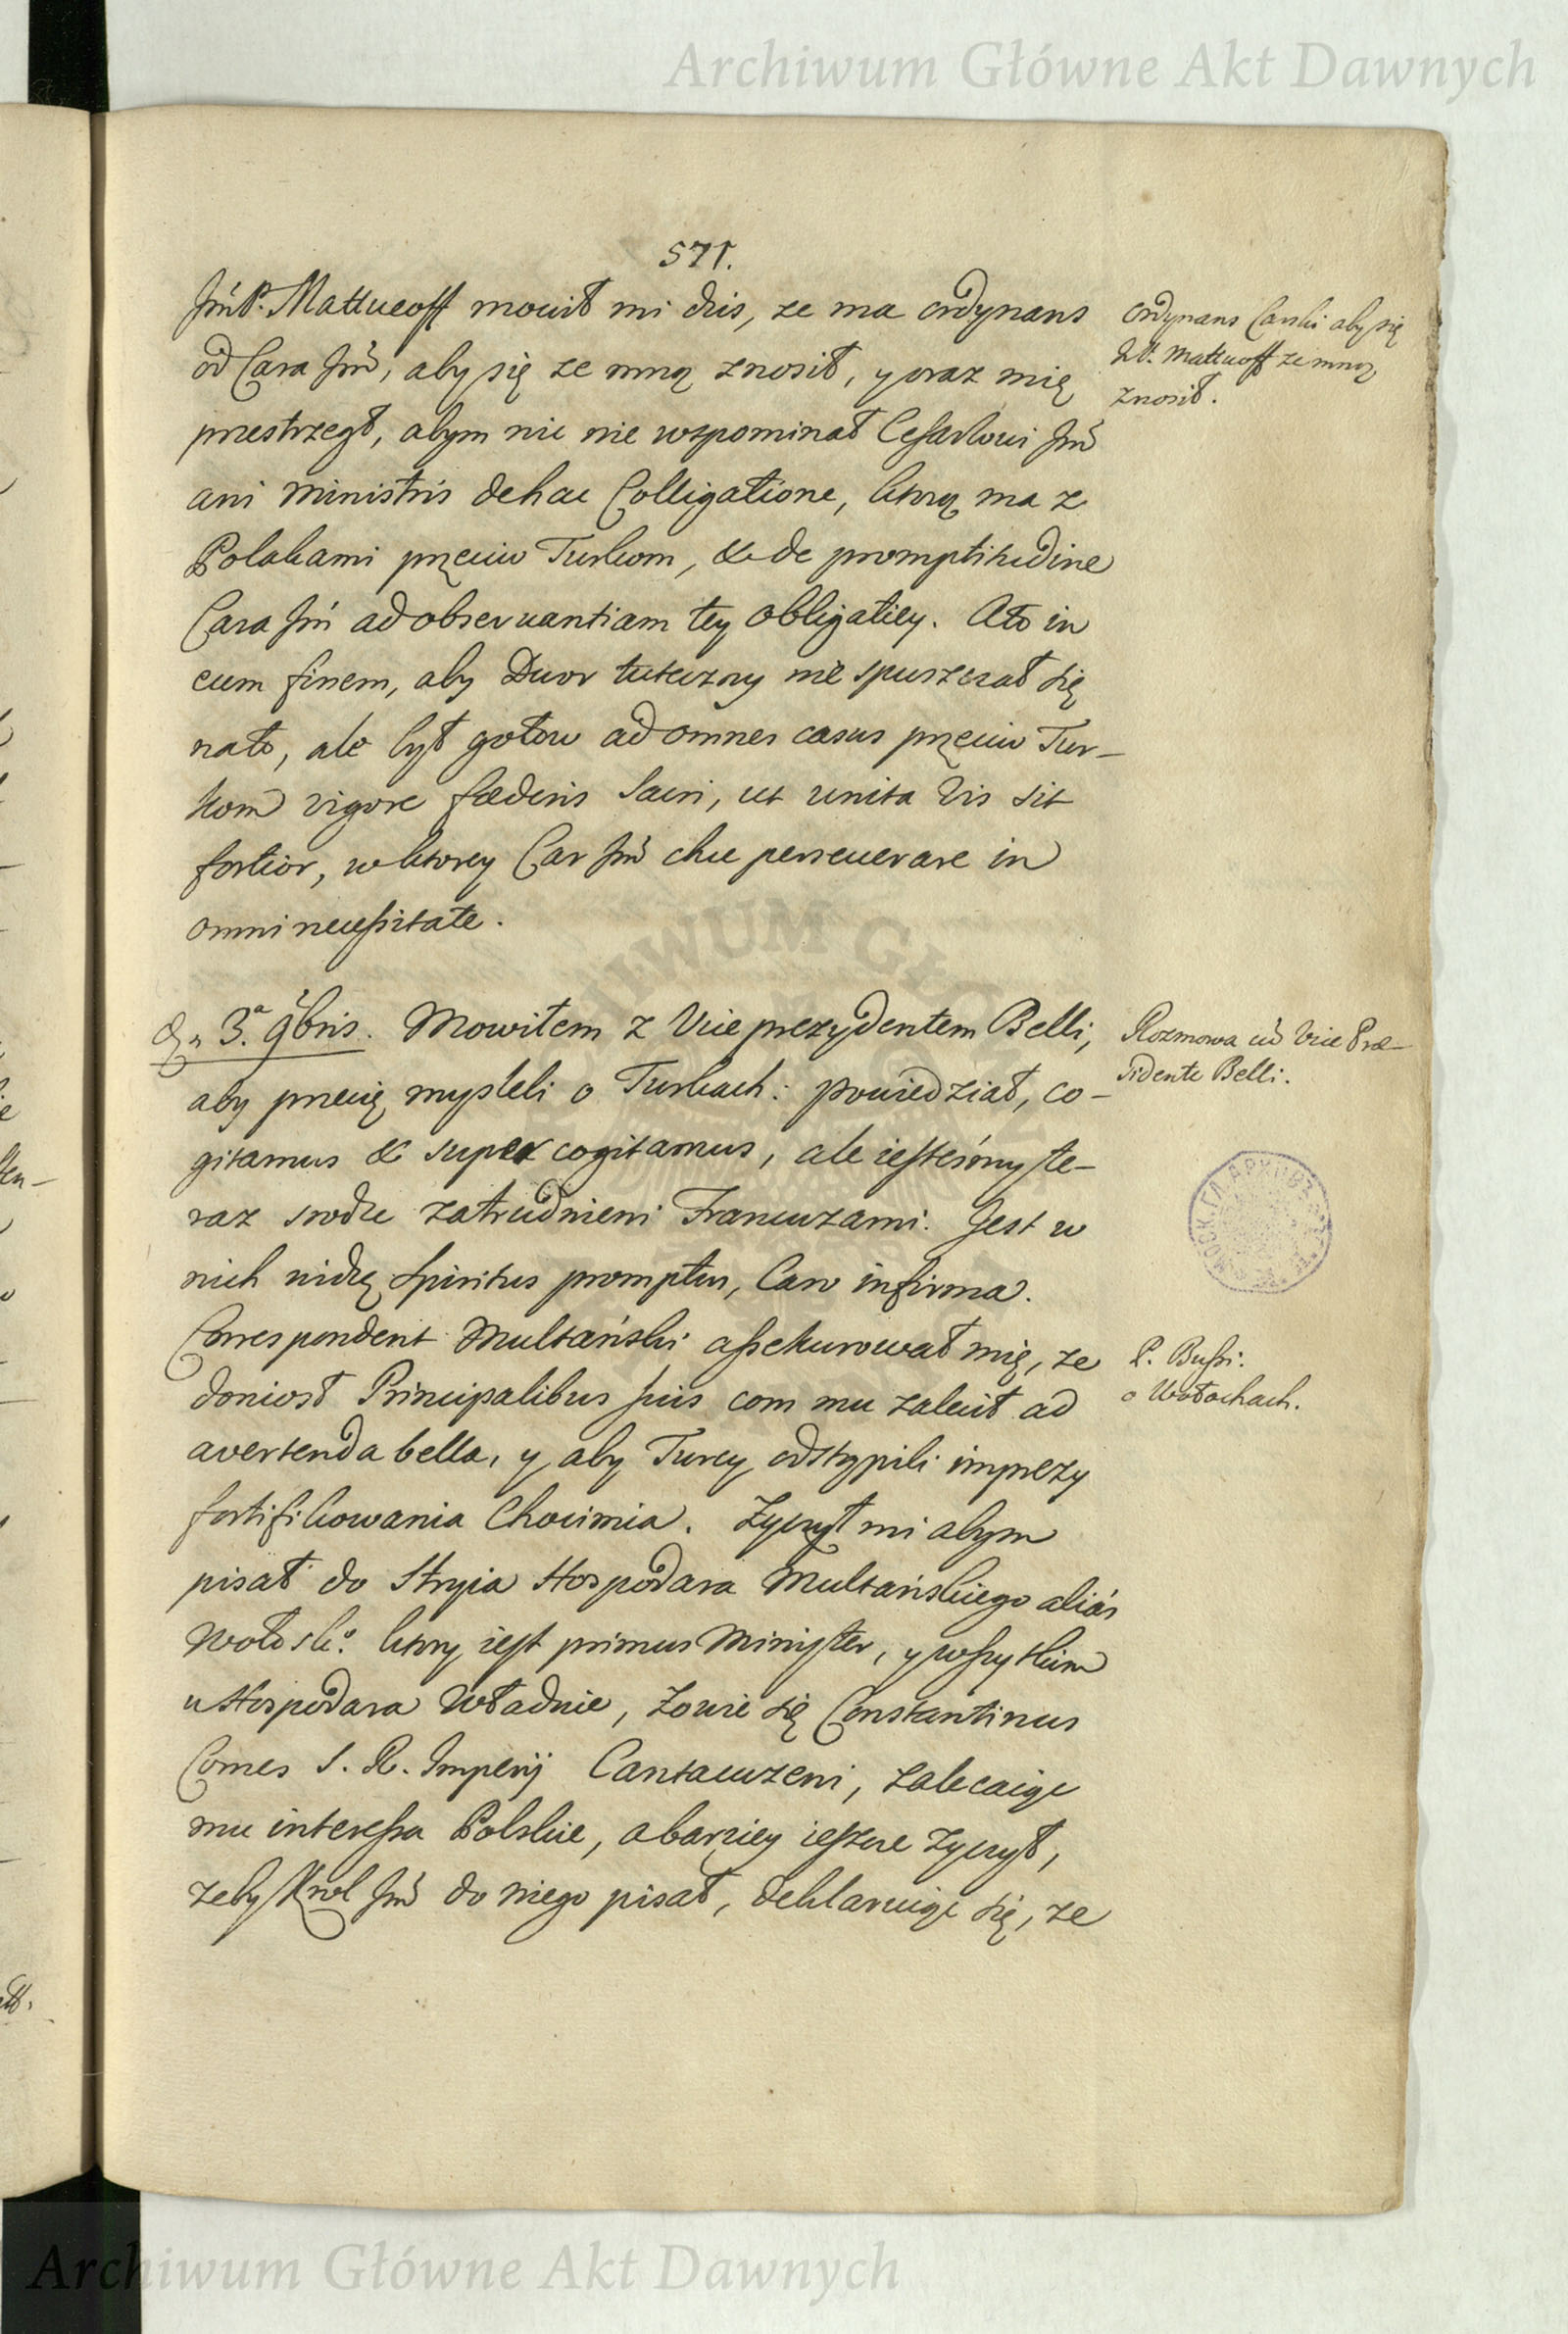 Archiwum Główne Akt Dawnych
571.
JmP. Mattueoff mowił mi dzis, ze ma ordynans
od Cara Jm̃, aby się ze mną znosił, y oraz mię
przestrzegł, abym nic nie wspominał Cesarzowi Jm̃
ani Ministris de hac Colligatione, ktorą ma z
Polakami przeciw Turkom, & de promptitudine
Cara Jm̃ ad observantiam tey obligatiey. A to in
eum finem, aby Dwor tuteczny nie spuszczał się
nato, ale był gotow ad omnes casus przeciw Tur-
kom vigore fœderis Sacri, ut unita Vis sit
fortior, w ktorey Car Jm̃ chce perseverare in
omni necessitate.
Ordynans Carski aby się
JP. Mattueoff ze mną
znosił.
3.a 9bris. Mowiłem z Vice prezydentem Belli,
aby przecię mysleli o Turkach: powiedział, co-
gitamus & super cogitamus, ale iestesmy te-
raz srodze zatrudnieni Francuzami. Jest w
nich widzę Spiritus promptus, Caro infirma.
Correspondent Multański assekurował mię, ze
doniosł Principalibus suis com mu zalecił ad
avertenda bella, y aby Turcy odstąpili imprezy
fortifikowania Chocimia. Zyczył mi abym
pisał do Stryia Hospodara Multańskiego aliàs
Wołosko. ktory iest primus Minister, y wszytkim
u Hospodara Władnie, Zowie się Constantinus
Comes S. R. Imperij Cantacuzeni, zalecaiąc
mu interessa Polskie, a barziey ieszcze zyczył,
zeby Krol Jm̃ do niego pisał, deklaruiąc się, ze
Rozmowa cũ Vice Præ-
sidente Belli.
P. Bussi.
o Wołochach.
Archiwum Główne Akt Dawnych